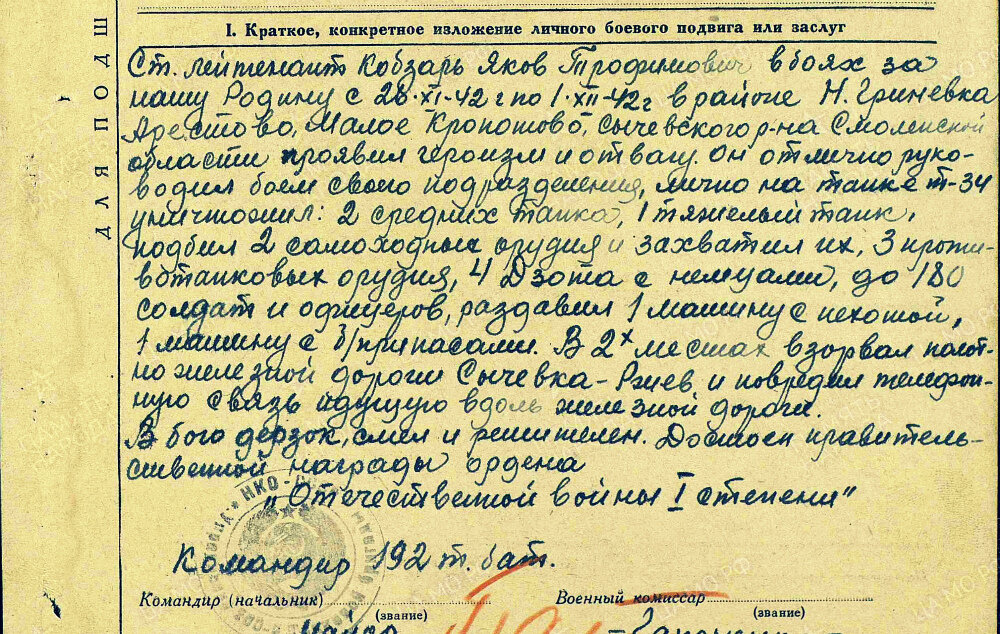 ДЛЯ ПОДШ
I. Краткое, конкретное изложение личного боевого подвига или заслуг
Ст. лейтенант Кобзарь Яков Трофимович в боях за
нашу Родину с 28·XI·42 г по 1·XII·42 г в районе Н. Гриневка
Арестово, Малое Кропотово, Сычевского р-на Смоленской
области проявил героизм и отвагу. Он отлично руко-
водил боем своего подразделения, лично на танке Т-34
уничтожил: 2 средних танка, 1 тяжелый танк,
подбил 2 самоходных орудия и захватил их, 3 проти-
вотанковых орудия, 4 Дзота с немцами, до 180
солдат и офицеров, раздавил 1 машину с пехотой,
1 машину с б/припасами. В 2х местах взорвал полот-
но железной дороги Сычевка-Ржев и повредил телефон-
ную связь идущую вдоль железной дороги.
В бою дерзок, смел и решителен. Достоен правитель-
ственной награды ордена
„Отечественной войны I степени"
НКО
Командир 192 т. бат.
Командир (начальник)
Военный комиссар
(звание)
(звание)
майор